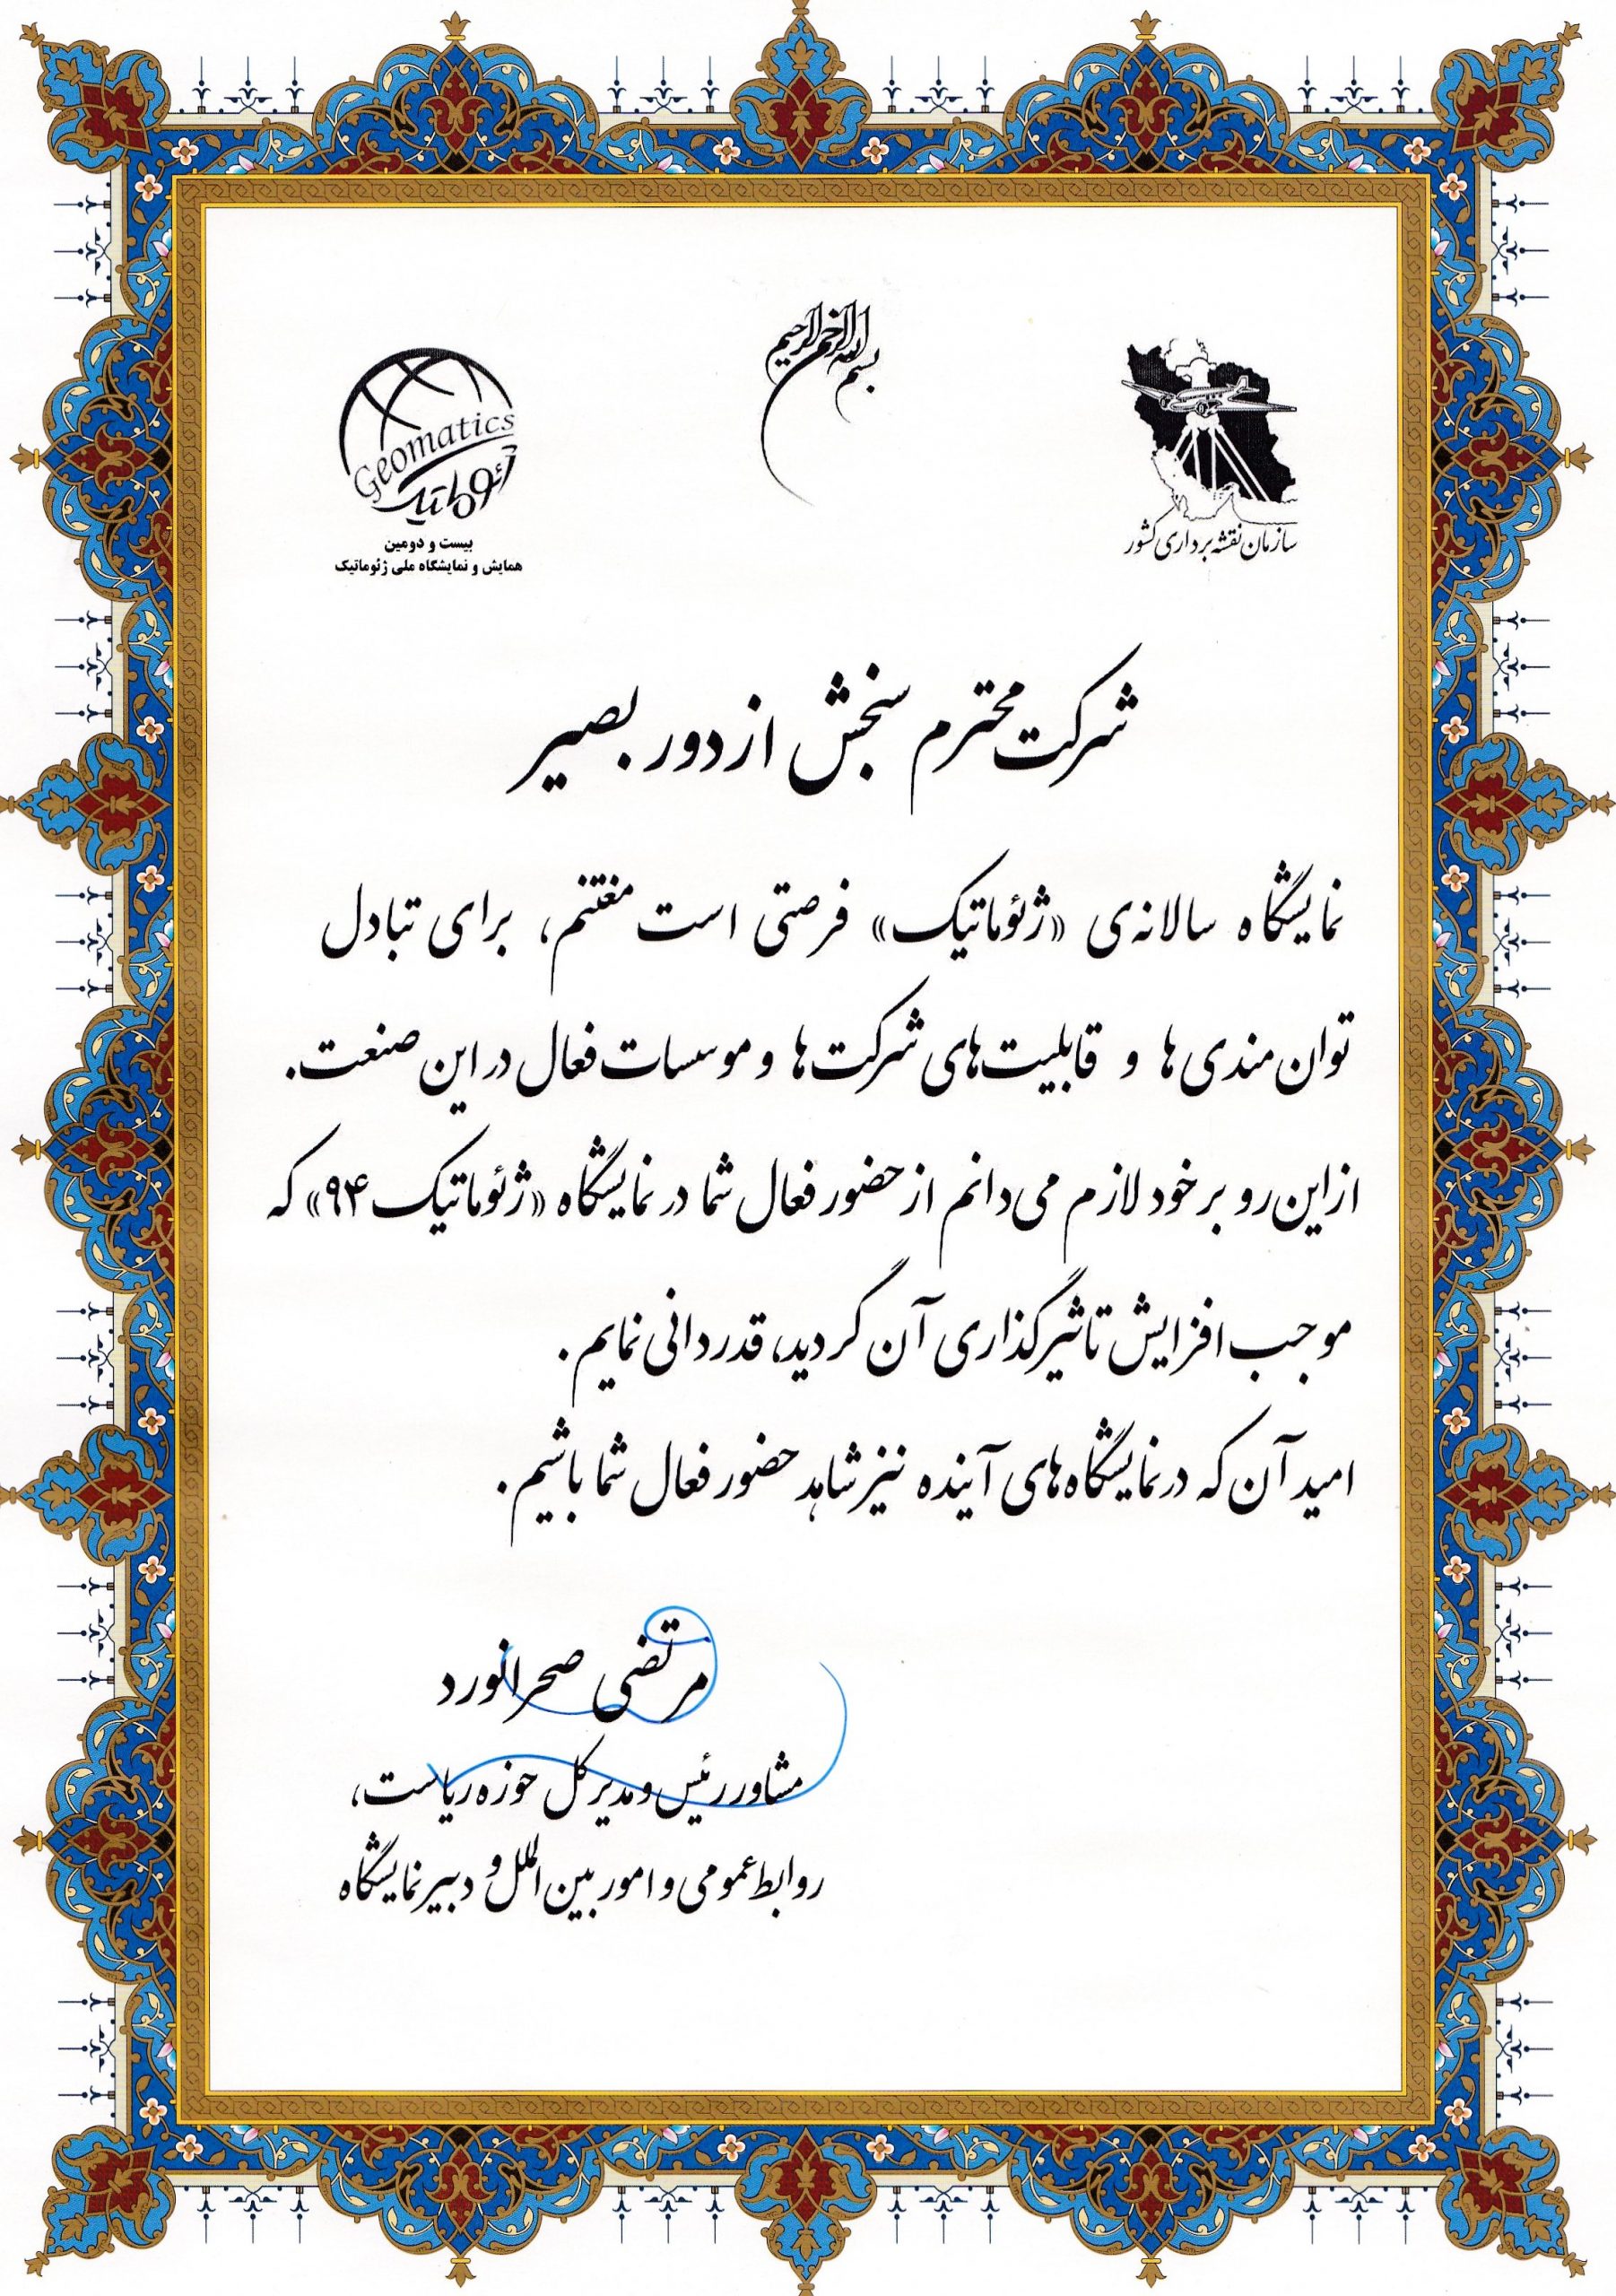 بسم الله الرحمن الرحیم
سازمان نقشه برداری کشور
Geomatics
ژئوماتیک
بیست و دومین
همایش و نمایشگاه ملی ژئوماتیک
شرکت محترم سنجش از دور بصیر
نمایشگاه سالانه‌ی «ژئوماتیک» فرصتی است مغتنم، برای تبادل
توان‌مندی‌ها و قابلیت‌های شرکت‌ها و موسسات فعال در این صنعت.
از این رو بر خود لازم می‌دانم از حضور فعال شما در نمایشگاه «ژئوماتیک ۹۴» که
موجب افزایش تاثیرگذاری آن گردید، قدردانی نمایم.
امید آن که در نمایشگاه‌های آینده نیز شاهد حضور فعال شما باشیم.
مرتضی صحرانورد
مشاور رئیس و مدیر کل حوزه ریاست،
روابط عمومی و امور بین‌الملل و دبیر نمایشگاه